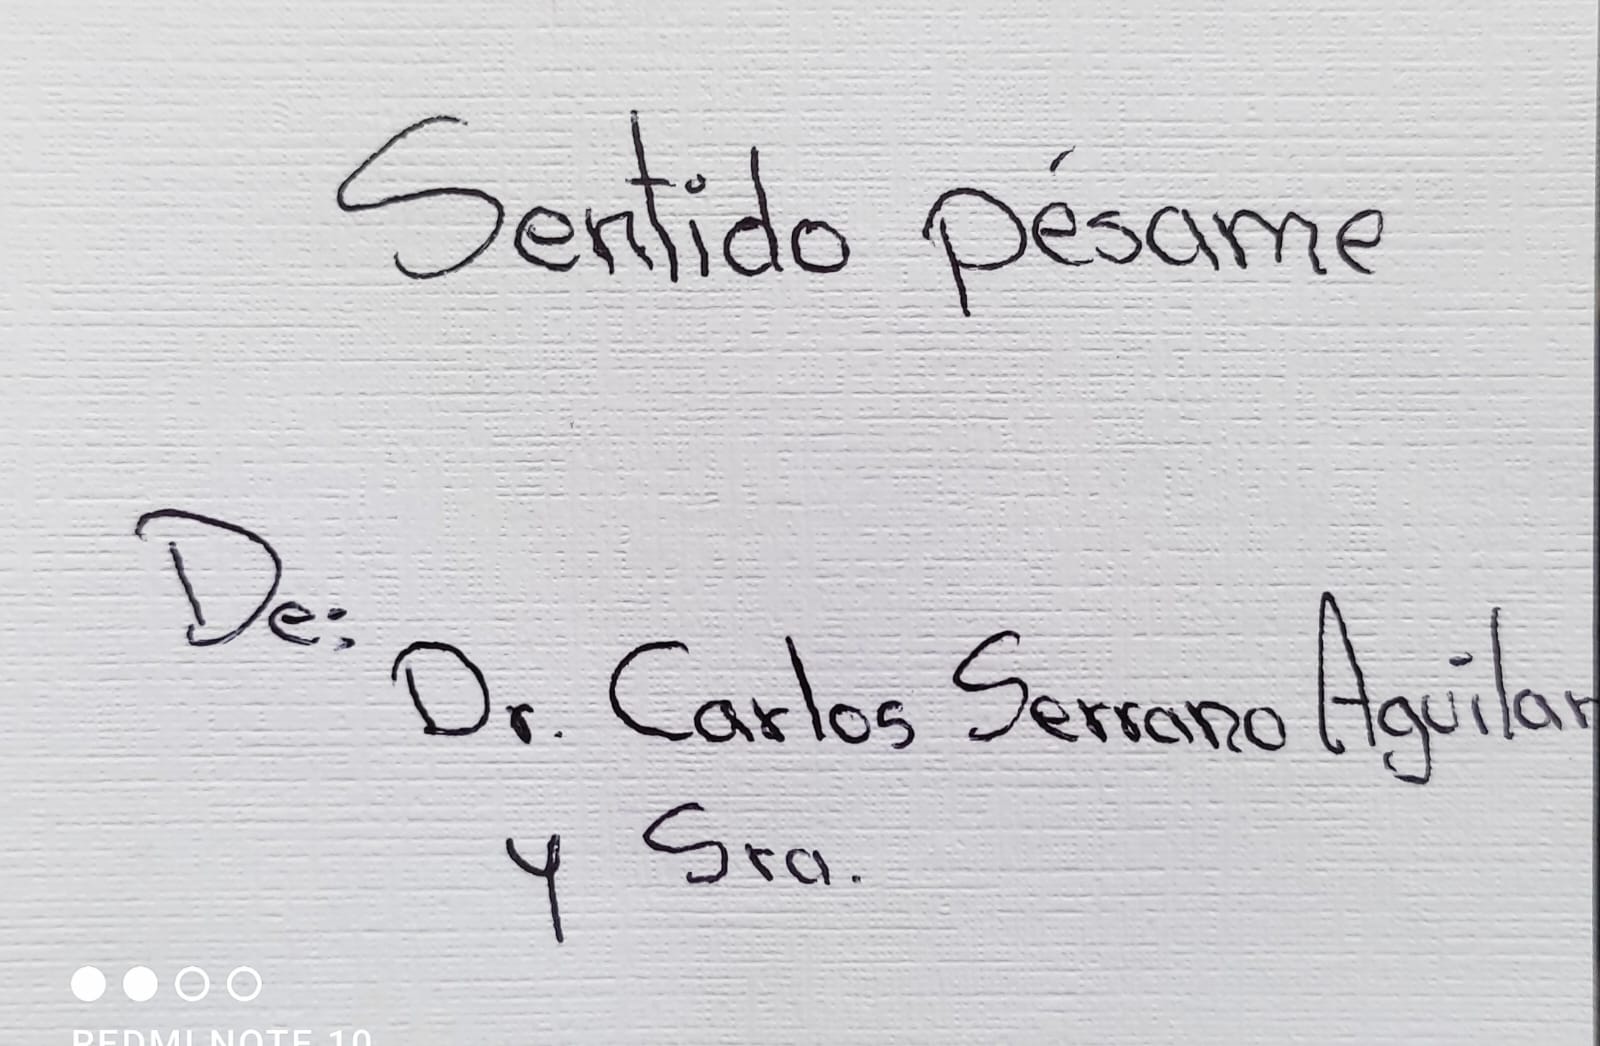 Sentido pésame
De:
Dr. Carlos Serrano Aguilar
y Sra.
REDMI NOTE 10